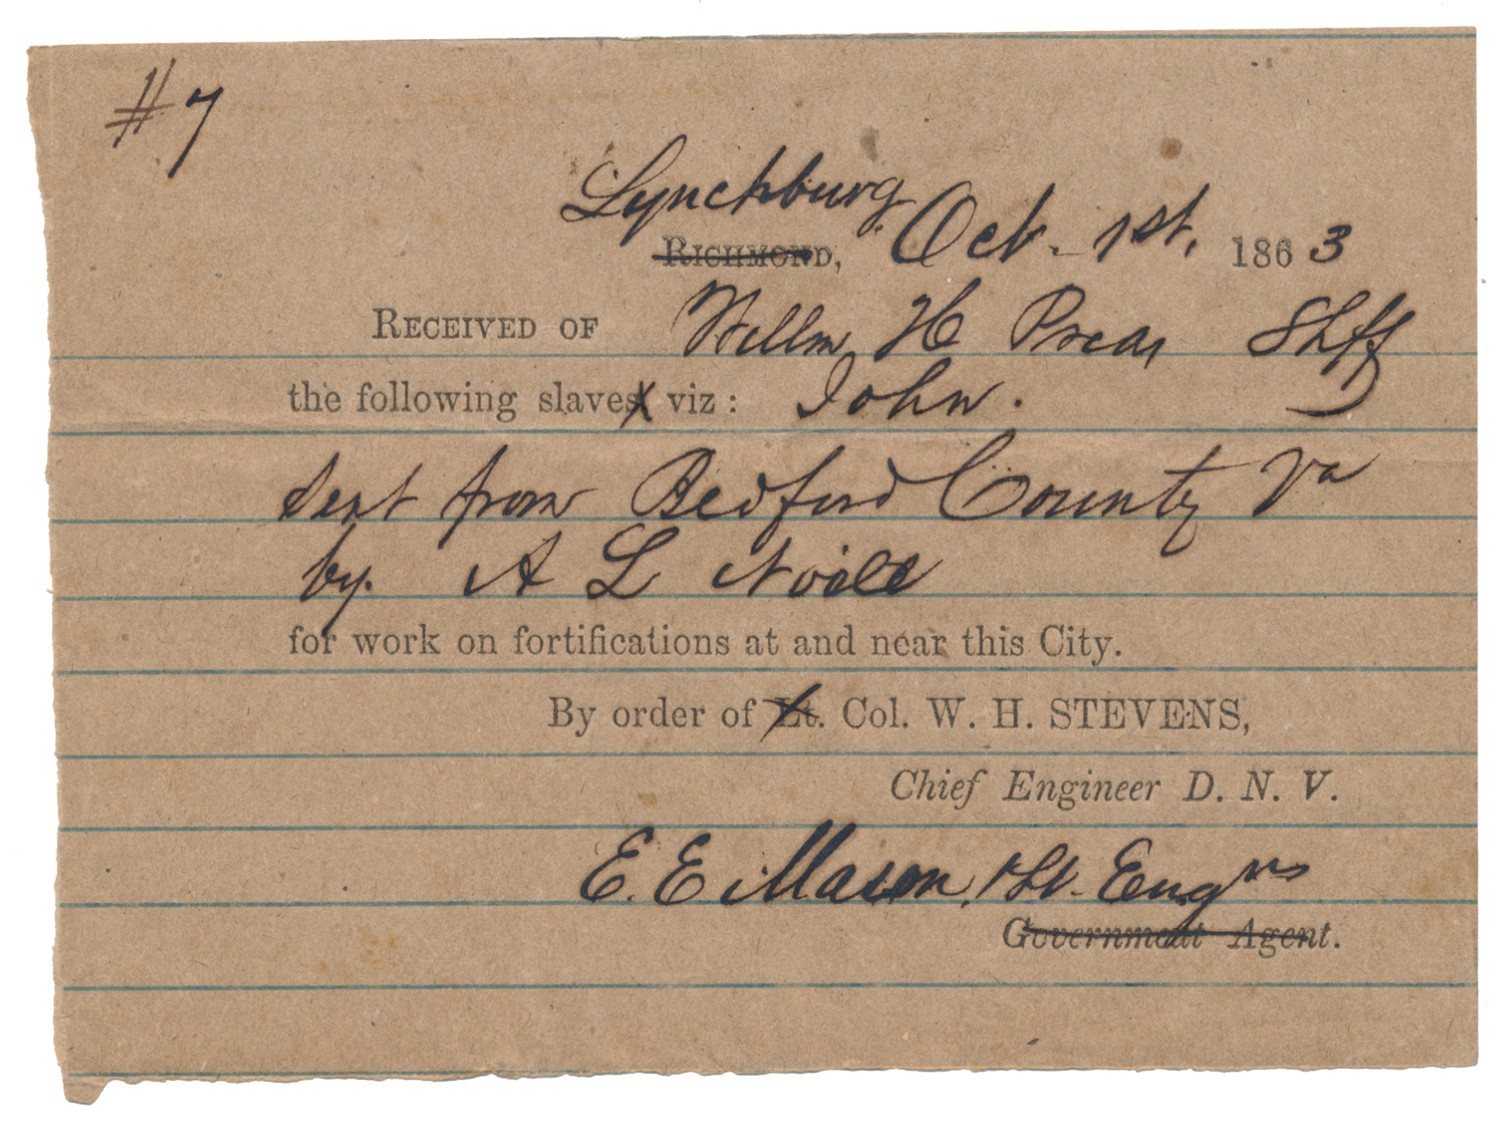 #7
Lynchburg
RICHMOND, Oct. 1st, 1863
RECEIVED OF Willm H Shff
the following slaves viz: John.
sent from Bedford County Va
by. A L Noell
for work on fortifications at and near this City.
By order of Lt. Col. W. H. STEVENS,
Chief Engineer D. N. V.
E. E Mason, 1 Lt. Engrs
Government Agent.